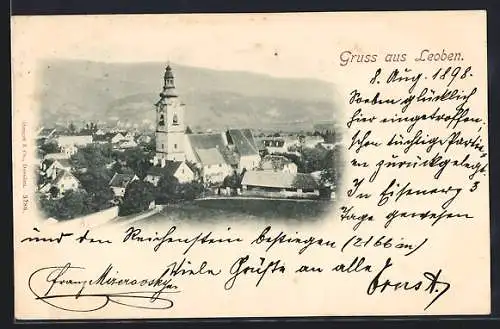 Gruss aus Leoben.
8. Aug. 1898.
Soeben glücklich
hier eingetroffen,
schon tüchtige Partien
zurückgelegt.
In Eisenerz 3
Tage gewesen
und den Reichenstein bestiegen (2166 m)
Viele Grüße an alle Ernst.
Franz Miserovsky
Stengel & Co., Dresden. 3784